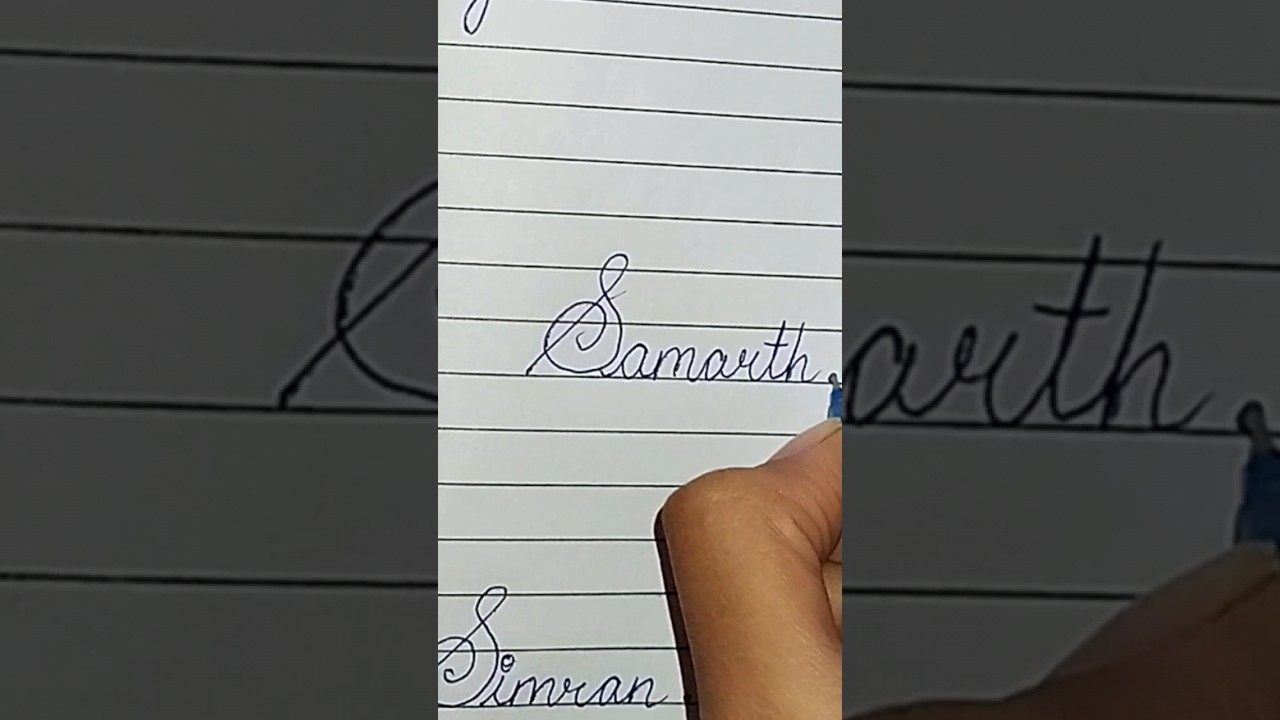 Samarth.
Simran.